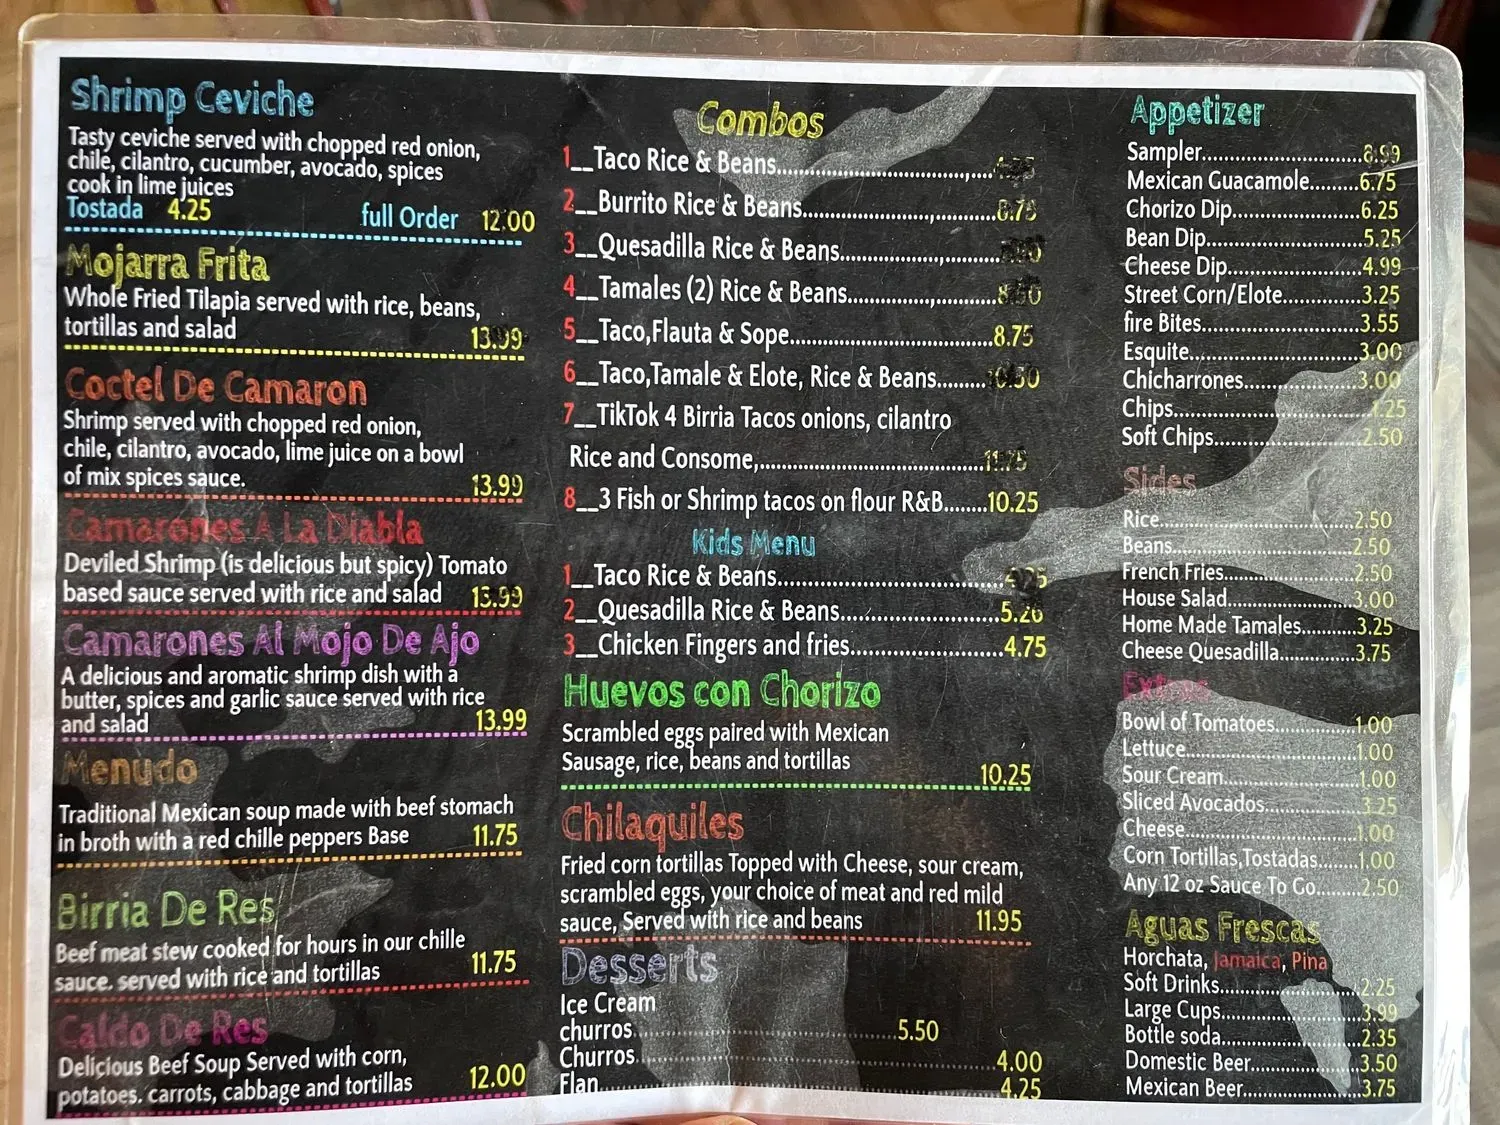 Shrimp Ceviche
Tasty ceviche served with chopped red onion,
chile, cilantro, cucumber, avocado, spices
cook in lime juices
Tostada 4.25 full Order 12.00
Mojarra Frita
Whole Fried Tilapia served with rice, beans,
tortillas and salad 13.99
Coctel De Camaron
Shrimp served with chopped red onion,
chile, cilantro, avocado, lime juice on a bowl
of mix spices sauce. 13.99
Camarones A La Diabla
Deviled Shrimp (is delicious but spicy) Tomato
based sauce served with rice and salad 13.99
Camarones Al Mojo De Ajo
A delicious and aromatic shrimp dish with a
butter, spices and garlic sauce served with rice
and salad 13.99
Menudo
Traditional Mexican soup made with beef stomach
in broth with a red chille peppers Base 11.75
Birria De Res
Beef meat stew cooked for hours in our chille
sauce. served with rice and tortillas 11.75
Caldo De Res
Delicious Beef Soup Served with corn,
potatoes. carrots, cabbage and tortillas 12.00
Combos
1__Taco Rice & Beans
2__Burrito Rice & Beans
3__Quesadilla Rice & Beans
4__Tamales (2) Rice & Beans
5__Taco,Flauta & Sope 8.75
6__Taco,Tamale & Elote, Rice & Beans
7__TikTok 4 Birria Tacos onions, cilantro
Rice and Consome, 11.75
8__3 Fish or Shrimp tacos on flour R&B 10.25
Kids Menu
1__Taco Rice & Beans
2__Quesadilla Rice & Beans
3__Chicken Fingers and fries 4.75
Huevos con Chorizo
Scrambled eggs paired with Mexican
Sausage, rice, beans and tortillas 10.25
Chilaquiles
Fried corn tortillas Topped with Cheese, sour cream,
scrambled eggs, your choice of meat and red mild
sauce, Served with rice and beans 11.95
Desserts
Ice Cream
churros 5.50
Churros 4.00
Flan 4.25
Appetizer
Sampler 8.99
Mexican Guacamole 6.75
Chorizo Dip 6.25
Bean Dip 5.25
Cheese Dip 4.99
Street Corn/Elote 3.25
fire Bites 3.55
Esquite 3.00
Chicharrones 3.00
Chips 1.25
Soft Chips 2.50
Sides
Rice 2.50
Beans 2.50
French Fries 2.50
House Salad 3.00
Home Made Tamales 3.25
Cheese Quesadilla 3.75
Extras
Bowl of Tomatoes 1.00
Lettuce 1.00
Sour Cream 1.00
Sliced Avocados 3.25
Cheese 1.00
Corn Tortillas,Tostadas 1.00
Any 12 oz Sauce To Go 2.50
Aguas Frescas
Horchata, Jamaica, Pina
Soft Drinks 2.25
Large Cups 3.99
Bottle soda 2.35
Domestic Beer 3.50
Mexican Beer 3.75